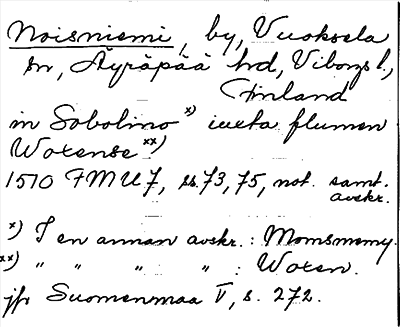 Noisniemi, by, Vuoksela
sn, Äyräpää hd, Viborgs l,
Finland
in Sobolino x) iuxta flumen
Woxense xx)
1510 FMU 7, ss. 73, 75, not. samt.
avskr.
x) I en annan avskr.: Momsmemy.
xx) " " " " : Woxen.
jfr Suomenmaa V, s. 272.